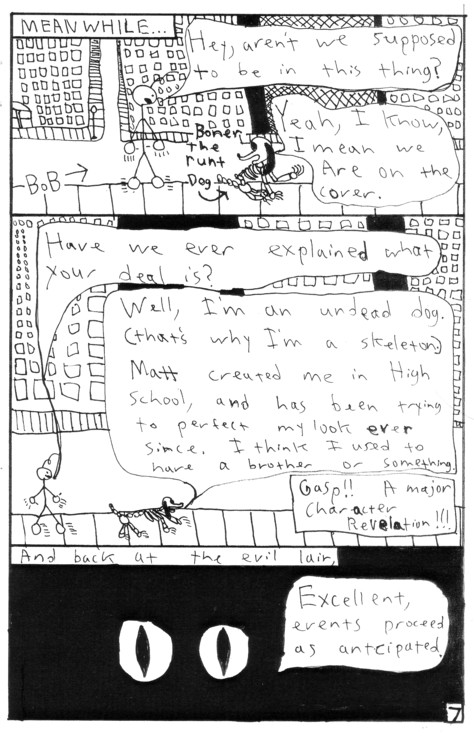 MEANWHILE...
Hey, aren't we supposed
to be in this thing?
Yeah, I know,
I mean we
Are on the
cover.
Boner
the
runt
Dog
BoB
Have we ever explained what
your deal is?
Well, I'm an undead dog.
(that's why I'm a skeleton)
Matt created me in High
School, and has been trying
to perfect my look ever
since. I think I used to
have a brother or something.
Gasp!! A major
Character
Revelation!!!
And back at the evil lair,
Excellent,
events proceed
as antcipated.
7